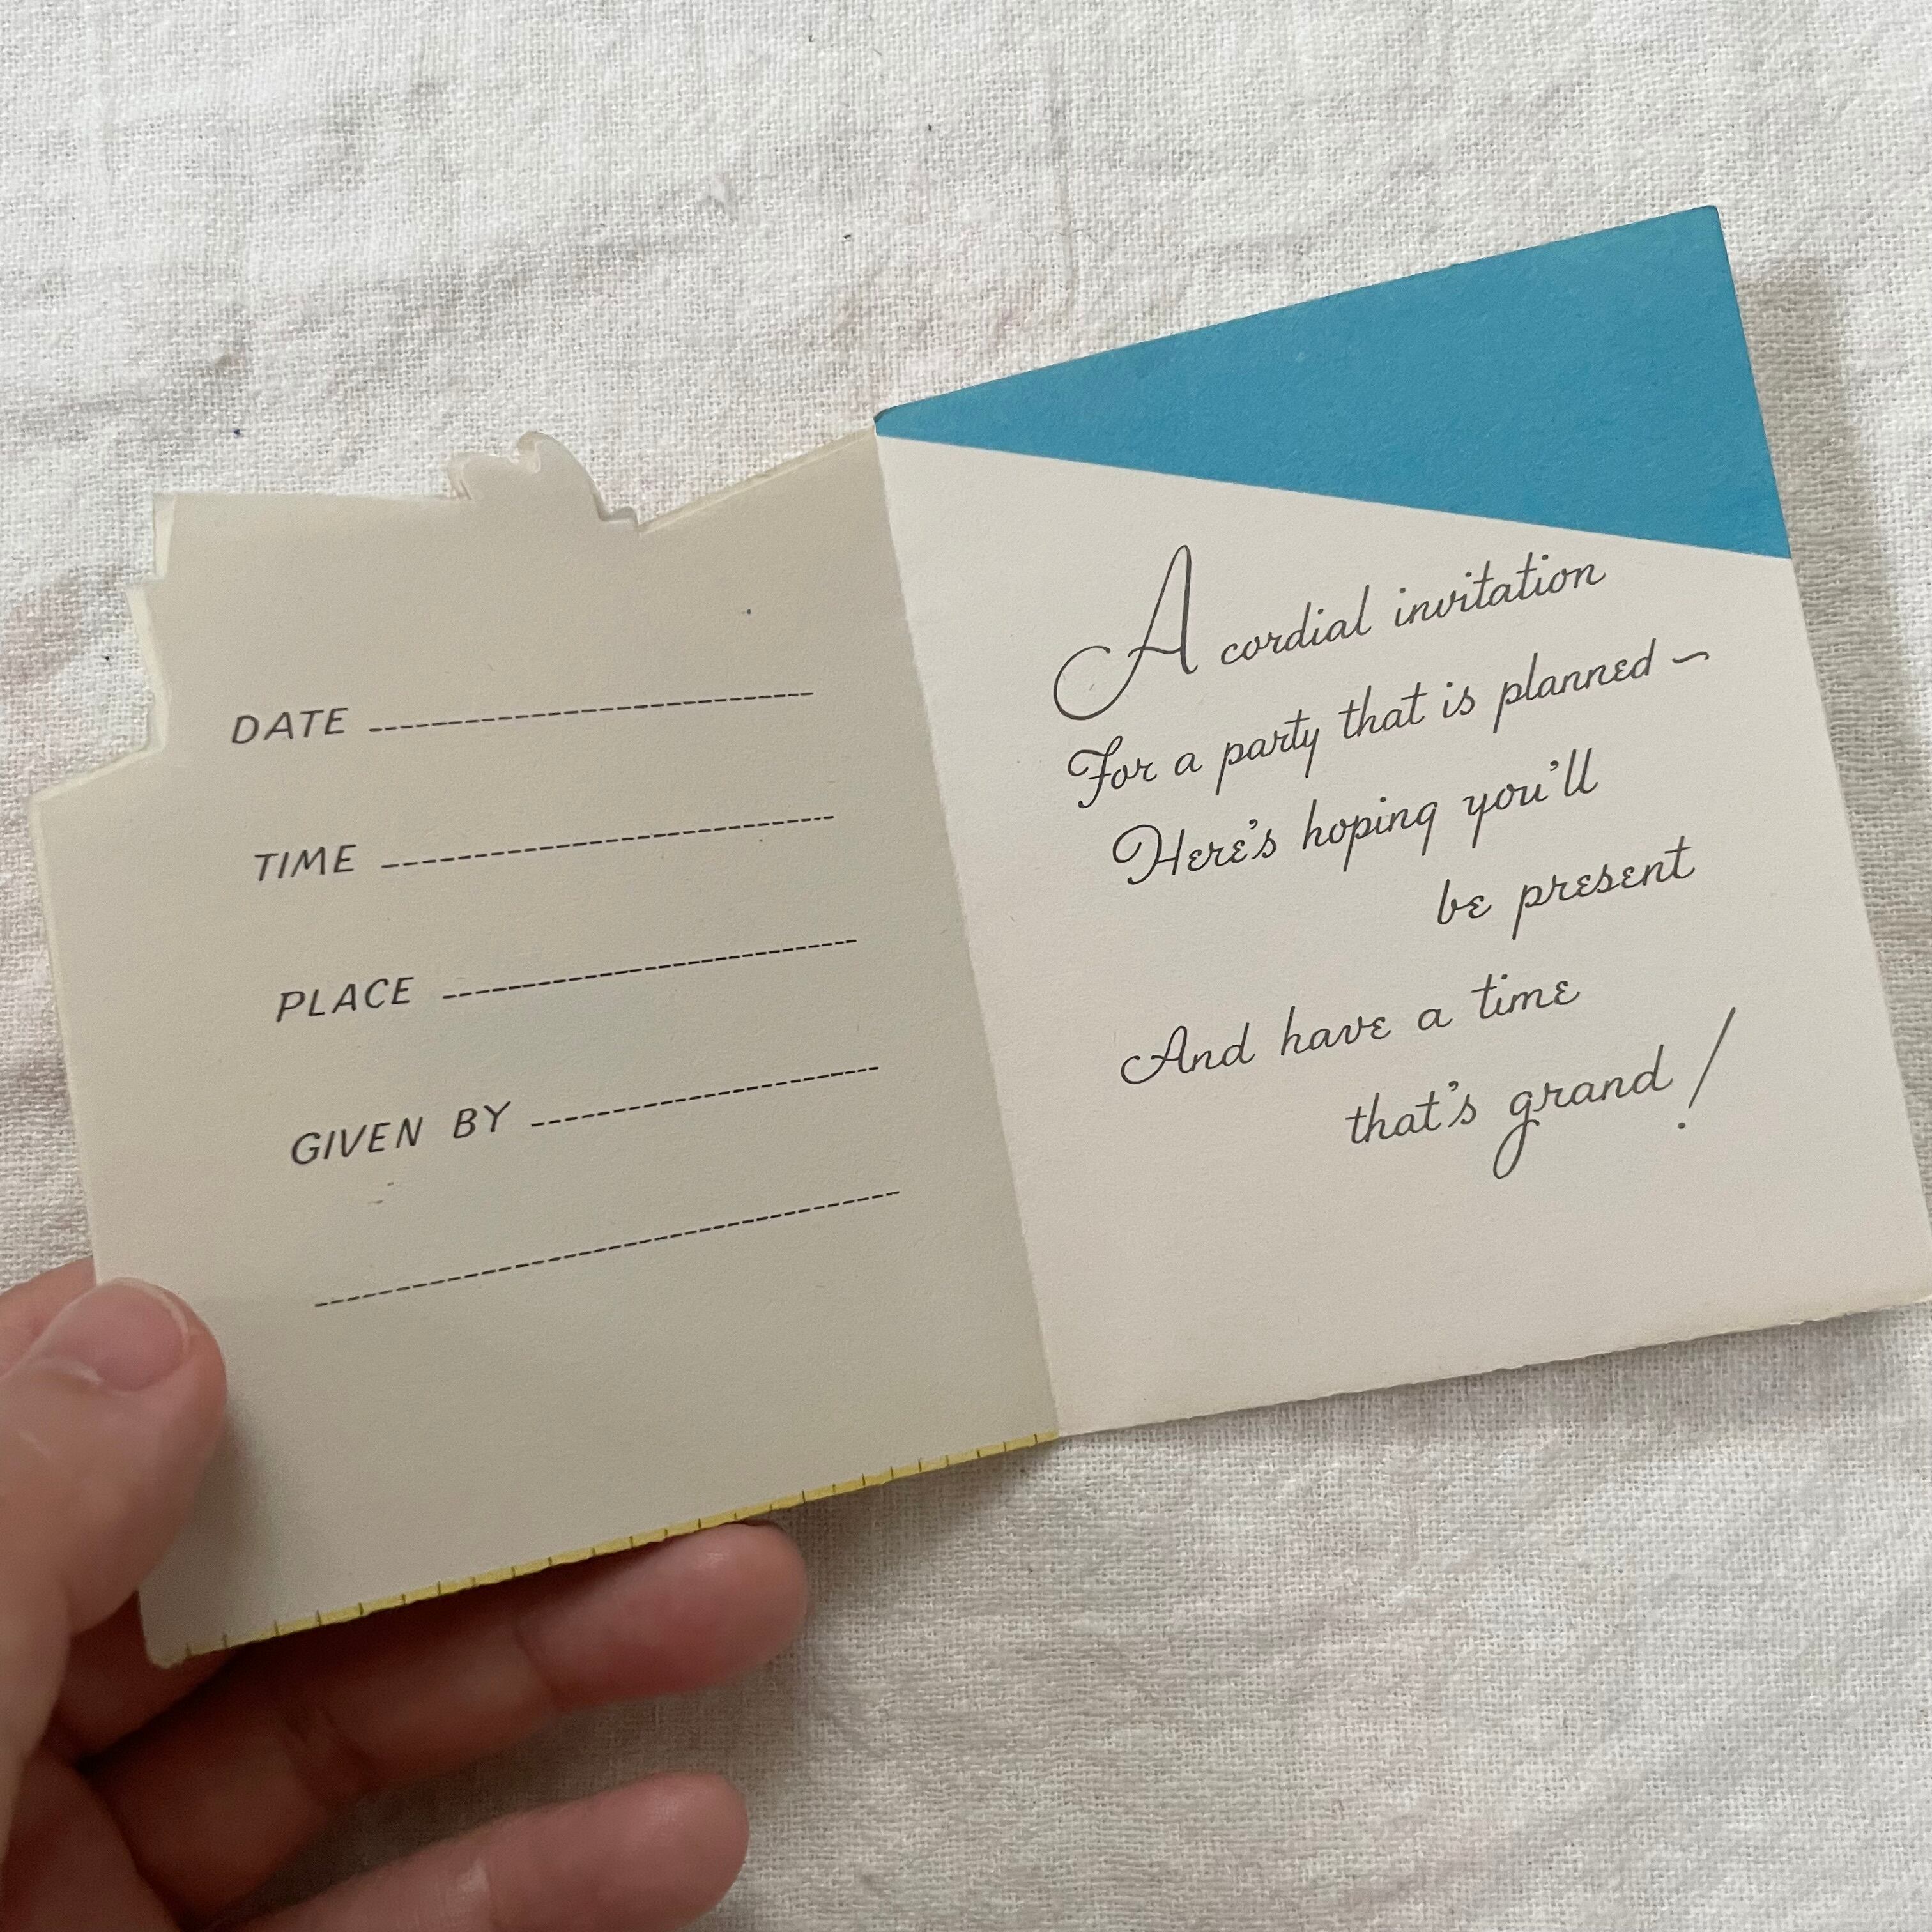 DATE
TIME
PLACE
GIVEN BY
A cordial invitation
For a party that is planned ~
Here's hoping you'll
be present
And have a time
that's grand!